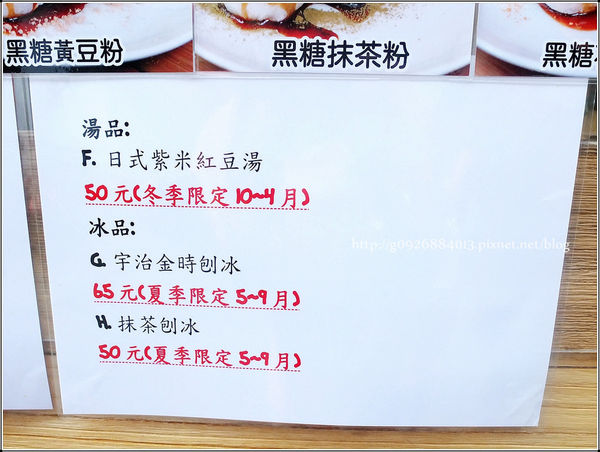 黑糖黃豆粉
黑糖抹茶粉
黑糖
湯品:
F. 日式紫米紅豆湯
50元(冬季限定10~4月)
冰品:
http://g0926884013.pixnet.net/blog
G. 宇治金時刨冰
65元(夏季限定5~9月)
H. 抹茶刨冰
50元(夏季限定5~9月)